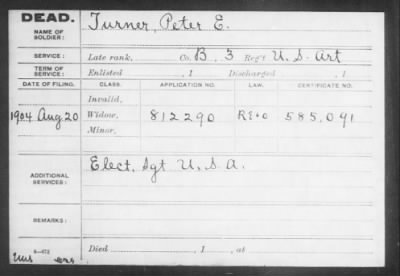 DEAD.
NAME OF SOLDIER: Turner, Peter E.
SERVICE: Late rank, Co. B, 3 Reg't U. S. Art
TERM OF SERVICE: Enlisted , 1 Discharged , 1
DATE OF FILING. CLASS. APPLICATION NO. LAW. CERTIFICATE NO.
Invalid,
1904 Aug 20 Widow, 812290 585,091
Minor,
ADDITIONAL SERVICES: Elect. Sgt U. S. A.
REMARKS:
Died , 1 , at